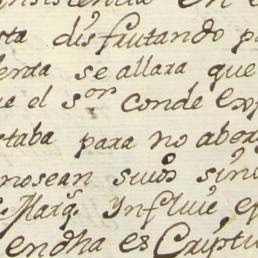 insistencia en e
sta disfrutando p
enta se allara que
ue el s.or conde exp
staba para no aber
nosean suios sino
Marq. Ynfluie, e
en dha escriptu